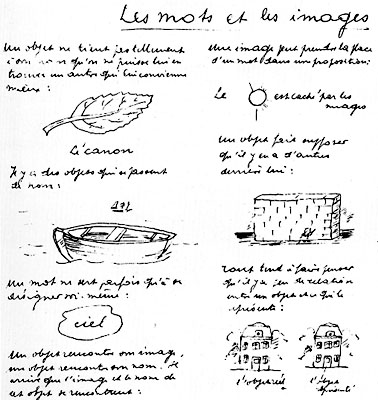 Les mots et les images
Un objet ne tient pas tellement
à son nom qu'on ne puisse lui en
trouver un autre qui lui convienne
mieux :
Le canon
Il y a des objets qui se passent
de nom :
Un mot ne sert parfois qu'à se
désigner soi-même :
ciel
Un objet rencontre son image,
un objet rencontre son nom. Il
arrive que l'image et le nom de
cet objet se rencontrent :
Une image peut prendre la place
d'un mot dans une proposition :
Le est caché par les
nuages
Un objet fait supposer
qu'il y en a d'autres
derrière lui :
Tout tend à faire penser
qu'il y a peu de relation
entre un objet et ce qui le
représente :
l'objet réel l'objet
représenté